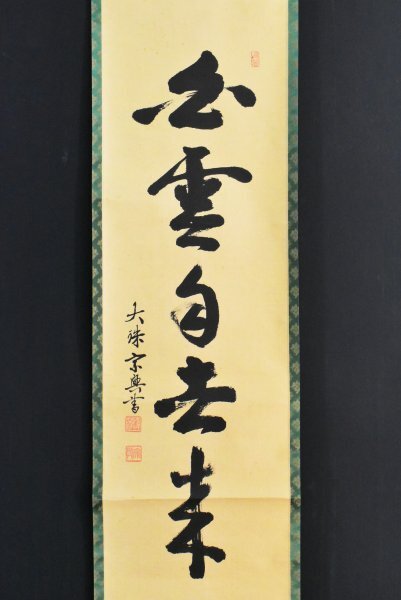 白雲自去来
大珠宗興書